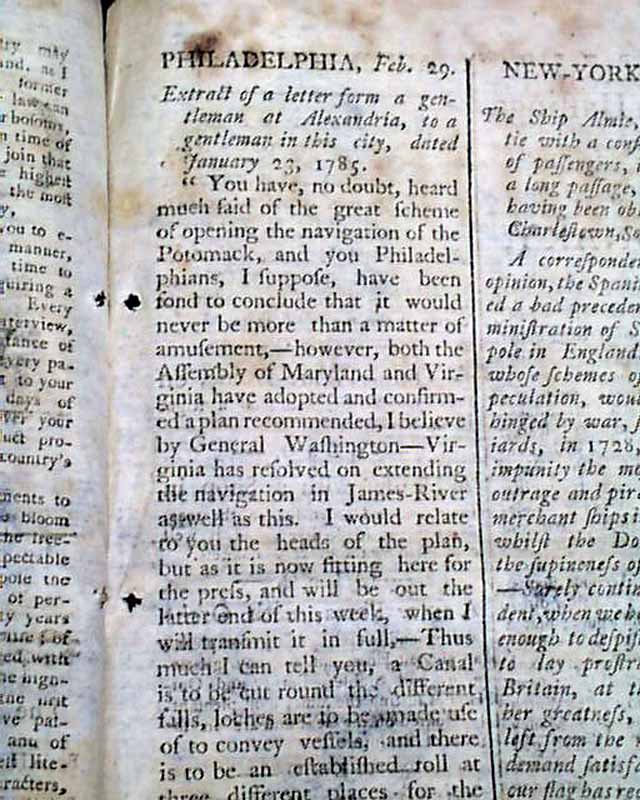 may
and. as I
former
law can
time of
join that
higheſt
the moſt
you to e-
manner,
time to
quiring a
Every
nterview,
of
very pa-
to your
days of
your
pro-
country's
ments to
bloom
the free-
ſpectable
the
of per-
years
of
with
the
pat-
and of
lite-
racters,
PHILADELPHIA, Feb. 29.
Extract of a letter form a gen-
tleman at Alexandria, to a
gentleman in this city, dated
January 23, 1785.
“ You have, no doubt, heard
much ſaid of the great ſcheme
of opening the navigation of the
Potomack, and you Philadel-
phians, I ſuppoſe, have been
fond to conclude that it would
never be more than a matter of
amuſement,—however, both the
Aſſembly of Maryland and Vir-
ginia have adopted and confirm-
ed a plan recommended, I believe
by General Waſhington—Vir-
ginia has reſolved on extending
the navigation in James-River
as well as this. I would relate
to you the heads of the plan,
but as it is now fitting here for
the preſs, and will be out the
latter end of this week, when I
will tranſmit it in full,—Thus
much I can tell you, a Canal
is to be cut round the different
falls, loches are to be made uſe
of to convey veſſels, and there
is to be an eſtabliſhed toll at
three different places for the
NEW-YORK
The Ship
tie with a
of paſſengers,
a long paſſage,
having been
Charleſtown,
A correſponden
opinion, the Spani
ed a bad preceden
miniſtration of S
pole in England
whoſe ſchemes of
peculation, woul
hinged by war,
iards, in 1728,
impunity the mo
outrage and pir
merchant ſhips
whilſt the Do
the ſupineneſs of
—Surely contin
dent, when we
enough to deſpiſe
to lay proſtr
Britain, at t
her greatneſs,
left from the
demand ſatisfa
our flag has re